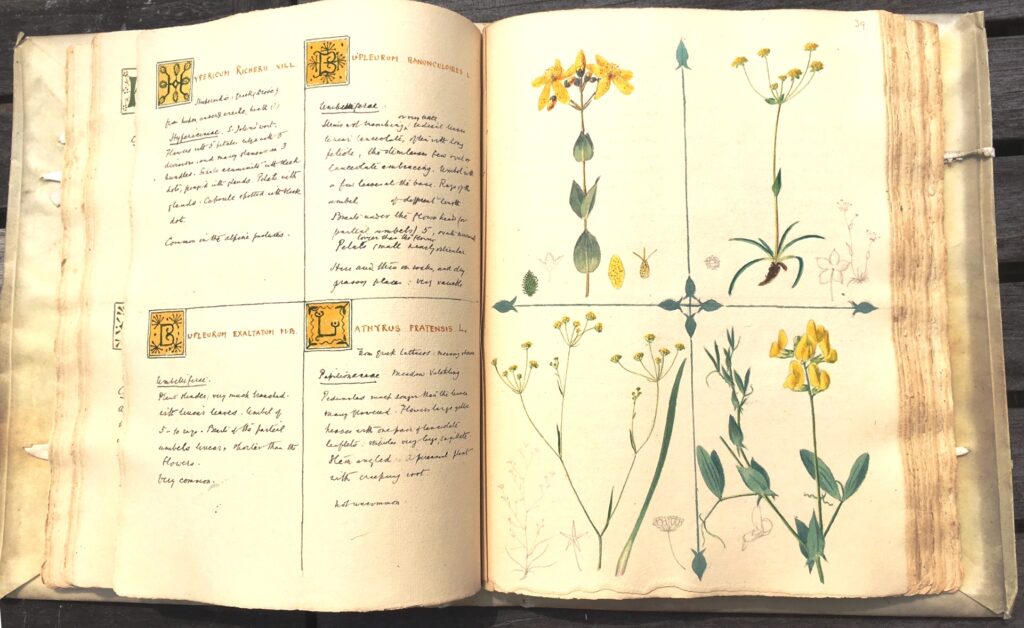 HYPERICUM RICHERII VILL.
from
Hypericinae. S. John's wort.
Flowers with 5 petals. calyx with 5
divisions, and many stamens in 3
bundles. Sepals acuminate with black
dots, fringed with glands. Petals with
glands. Capsule spotted with black
dots.
Common in the alpine pastures.
BUPLEURUM RANUNCULOIDES L
Umbelliferae.
or very little
Stems not branching, radical leaves
linear lanceolate, often with long
petiole, the stem leaves few oval or
lanceolate embracing. Umbel with
a few leaves at the base. Rays of the
umbel of different length
Bracts under the flower heads (or
partial umbels) 5, ovate
longer than the flowers
Petals small nearly orbicular
Here and there on rocky and dry
grassy places: very variable
BUPLEURUM EXALTATUM M.B.
Umbelliferae.
Plant slender, very much branched
with linear leaves. Umbel of
5-10 rays. Bracts of the partial
umbels linear, shorter than the
flowers.
Very common.
LATHYRUS PRATENSIS L.
from Greek
Papilionaceae Meadow Vetchling
Peduncles much longer than the leaves
many flowered. Flowers large yellow
leaves with one pair of lanceolate
leaflets. stipules very large, sagittate
Stem angled. A perennial plant
with creeping root.
Not uncommon
39